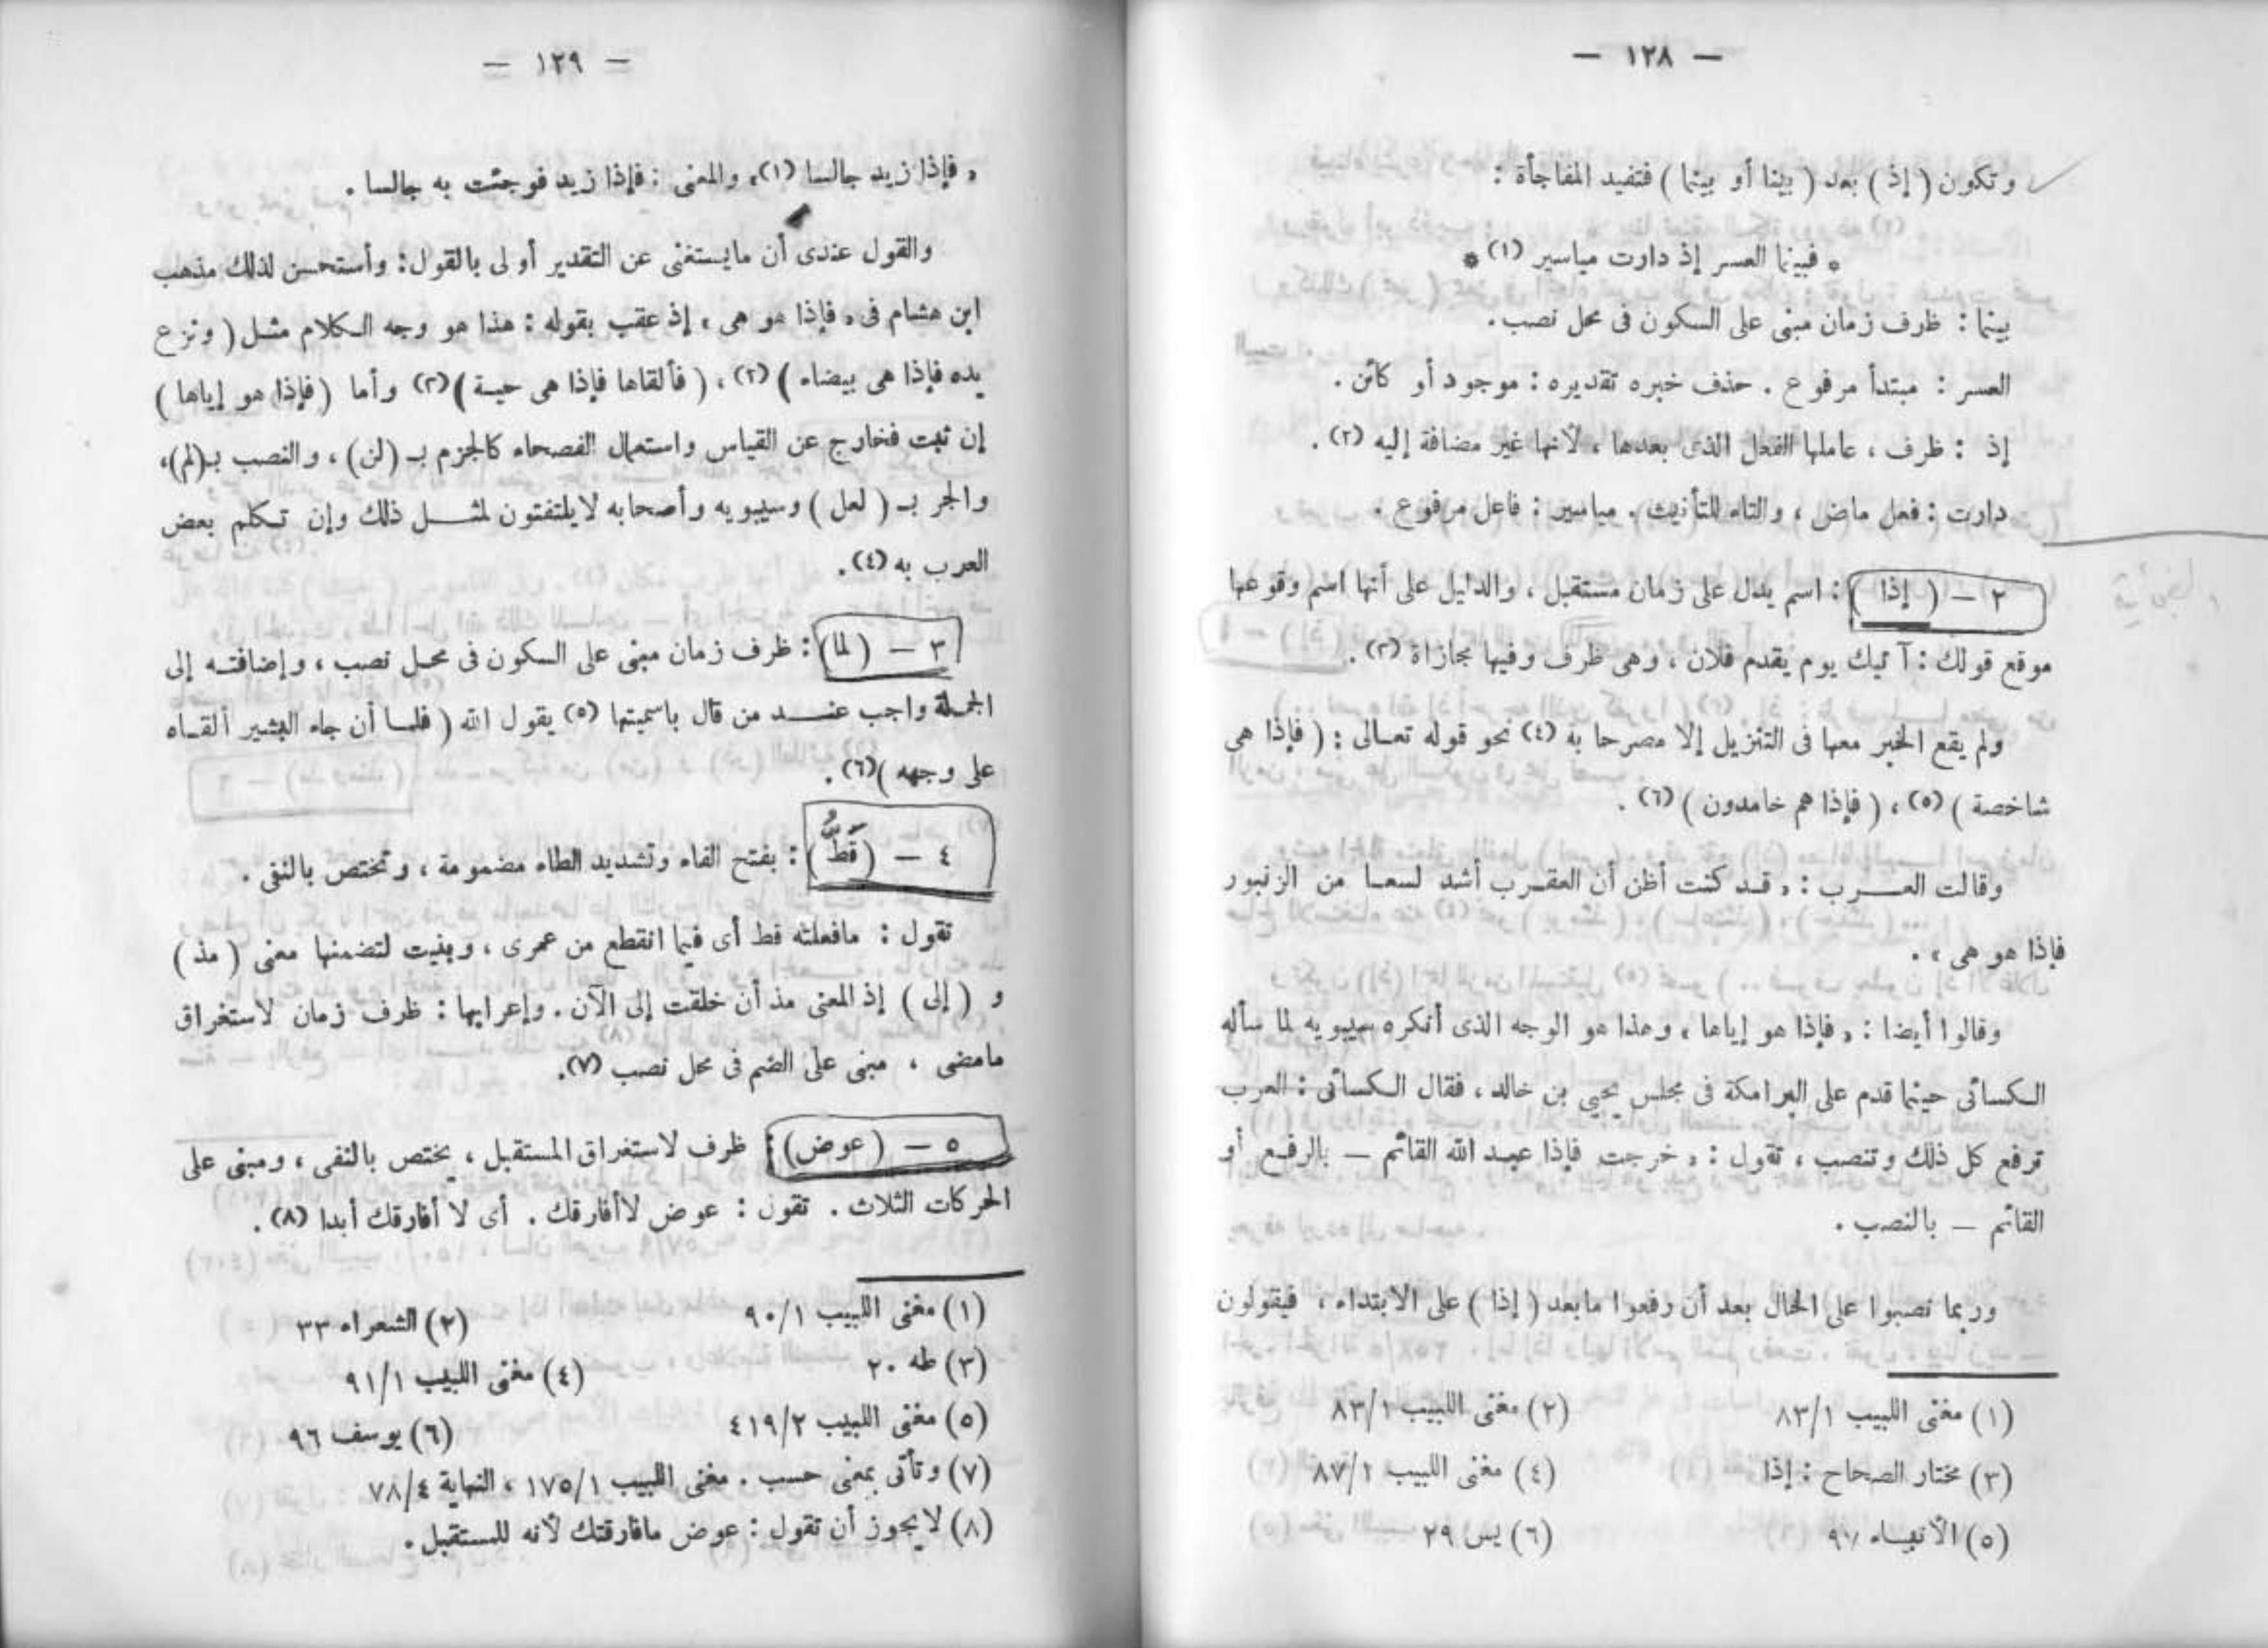 — ١٢٨ —
وتكون ( إذ ) بعد ( بينا أو بينما ) فتفيد المفاجأة :
* فبينما العسر إذ دارت مياسير (١) *
بينما : ظرف زمان مبنى على السكون فى محل نصب .
العسر : مبتدأ مرفوع . حذف خبره تقديره : موجود أو كائن .
إذ : ظرف ، عاملها الفعل الذى بعدها ، لأنها غير مضافة إليه (٢) .
دارت : فعل ماض ، والتاء للتأنيث . مياسير : فاعل مرفوع .
٢ – ( إذا ) : اسم يدل على زمان مستقبل ، والدليل على أنها اسم وقوعها
موقع قولك : آتيك يوم يقدم فلان ، وهى ظرف وفيها مجازاة (٣) .
ولم يقع الخبر معها فى التنزيل إلا مصرحا به (٤) نحو قوله تعالى : ( فإذا هى
شاخصة ) (٥) ، ( فإذا هم خامدون ) (٦) .
وقالت العرب : « قد كنت أظن أن العقرب أشد لسعا من الزنبور
فإذا هو هى » .
وقالوا أيضا : « فإذا هو إياها » وهذا هو الوجه الذى أنكره سيبويه لما سأله
الكسائى حينما قدم على البرامكة فى مجلس يحيى بن خالد ، فقال الكسائى : العرب
ترفع كل ذلك وتنصب ، تقول : « خرجت فإذا عبد الله القائم – بالرفع أو
القائم – بالنصب .
وربما نصبوا على الحال بعد أن رفعوا مابعد ( إذا ) على الابتداء ، فيقولون
(١) مغنى اللبيب ٨٣/١ (٢) مغنى اللبيب ٨٣/١
(٣) مختار الصحاح : إذا (٤) مغنى اللبيب ٨٧/١
(٥) الأنبياء ٩٧ (٦) يس ٢٩
— ١٢٩ —
« فإذا زيد جالسا (١)» والمعنى : فإذا زيد فوجئت به جالسا .
والقول عندى أن مايستغنى عن التقدير أولى بالقول : وأستحسن لذلك مذهب
ابن هشام فى « فإذا هو هى » إذ عقب بقوله : هذا هو وجه الكلام مثل ( ونزع
يده فإذا هى بيضاء ) (٢) ، ( فألقاها فإذا هى حية ) (٣) وأما ( فإذا هو إياها )
إن ثبت فخارج عن القياس واستعمال الفصحاء كالجزم بـ (لن) ، والنصب بـ(لم)،
والجر بـ ( لعل ) وسيبويه وأصحابه لايلتفتون لمثل ذلك وإن تكلم بعض
العرب به (٤) .
٣ – (لما) : ظرف زمان مبنى على السكون فى محل نصب ، وإضافته إلى
الجملة واجب عند من قال باسميتها (٥) يقول الله ( فلما أن جاء البشير ألقاه
على وجهه )(٦) .
٤ – (قَطُّ) : بفتح القاف وتشديد الطاء مضمومة ، وتختص بالنفى .
تقول : مافعلته قط أى فيما انقطع من عمرى ، وبنيت لتضمنها معنى ( مذ )
و ( إلى ) إذ المعنى مذ أن خلقت إلى الآن . وإعرابها : ظرف زمان لاستغراق
مامضى ، مبنى على الضم فى محل نصب (٧).
٥ – (عوض) : ظرف لاستغراق المستقبل ، يختص بالنفى ، ومبنى على
الحركات الثلاث . تقول : عوض لاأفارقك . أى لا أفارقك أبدا (٨) .
(١) مغنى اللبيب ٩٠/١ (٢) الشعراء ٣٣
(٣) طه ٢٠ (٤) مغنى اللبيب ٩١/١
(٥) مغنى اللبيب ٤١٩/٢ (٦) يوسف ٩٦
(٧) وتأتى بمعنى حسب . مغنى اللبيب ١٧٥/١ ، النهاية ٧٨/٤
(٨) لايجوز أن تقول : عوض مافارقتك لأنه للمستقبل .